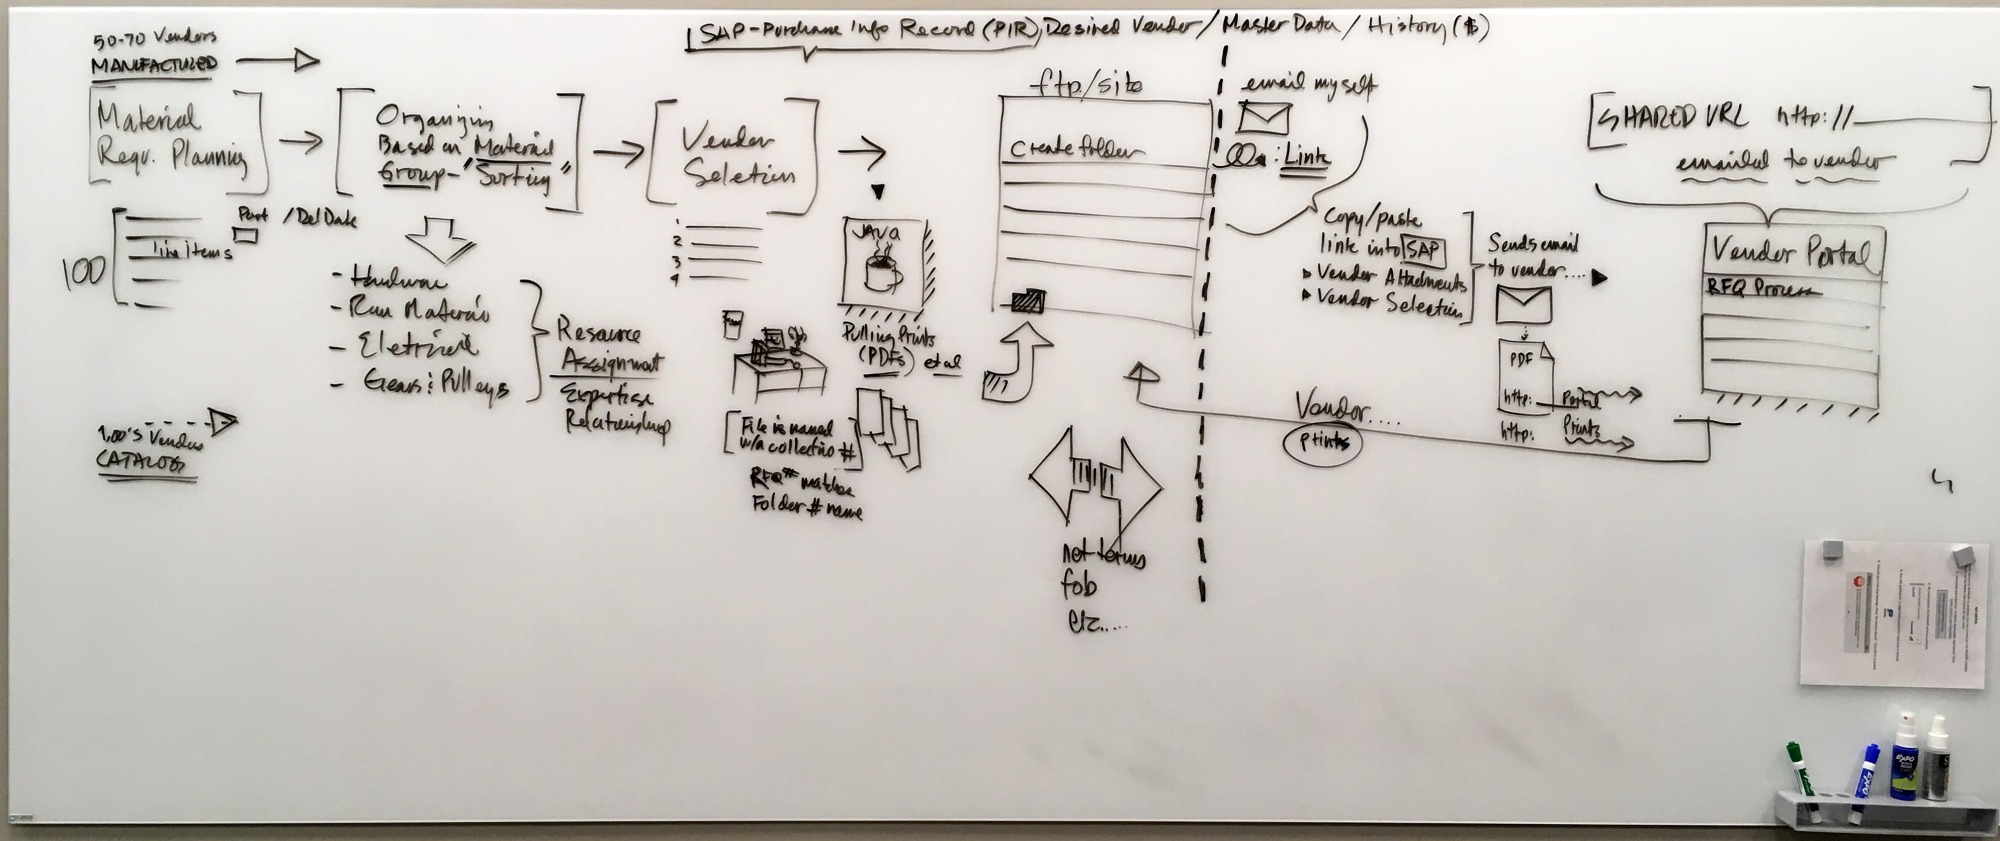 SAP-Purchase Info Record (PIR), Desired Vendor / Master Data / History ($)
50-70 Vendors
MANUFACTURED
Material
Requ. Planning
100
line items
Part / Del Date
1,00's Vendors
CATALOG
Organizing
Based on Material
Group - "Sorting"
- Hardware
- Raw Material
- Eletrical
- Gears & Pulleys
Resource
Assignment
Expertise
Relationship
Vendor
Seletion
1
2
3
4
JAVA
Pulling Prints
(PDFs) et al
File is named
w/a collective #
RFQ # matches
Folder # name
ftp/site
Create folder
net terms
fob
etc.....
email myself
: Link
Copy/paste
link into SAP
Vendor Attachments
Vendor Selection
Sends email
to vendor....
PDF
http: Portal
http: Prints
Vendor....
prints
SHARED URL http://
emailed to vendor
Vendor Portal
RFQ Process
EXPO